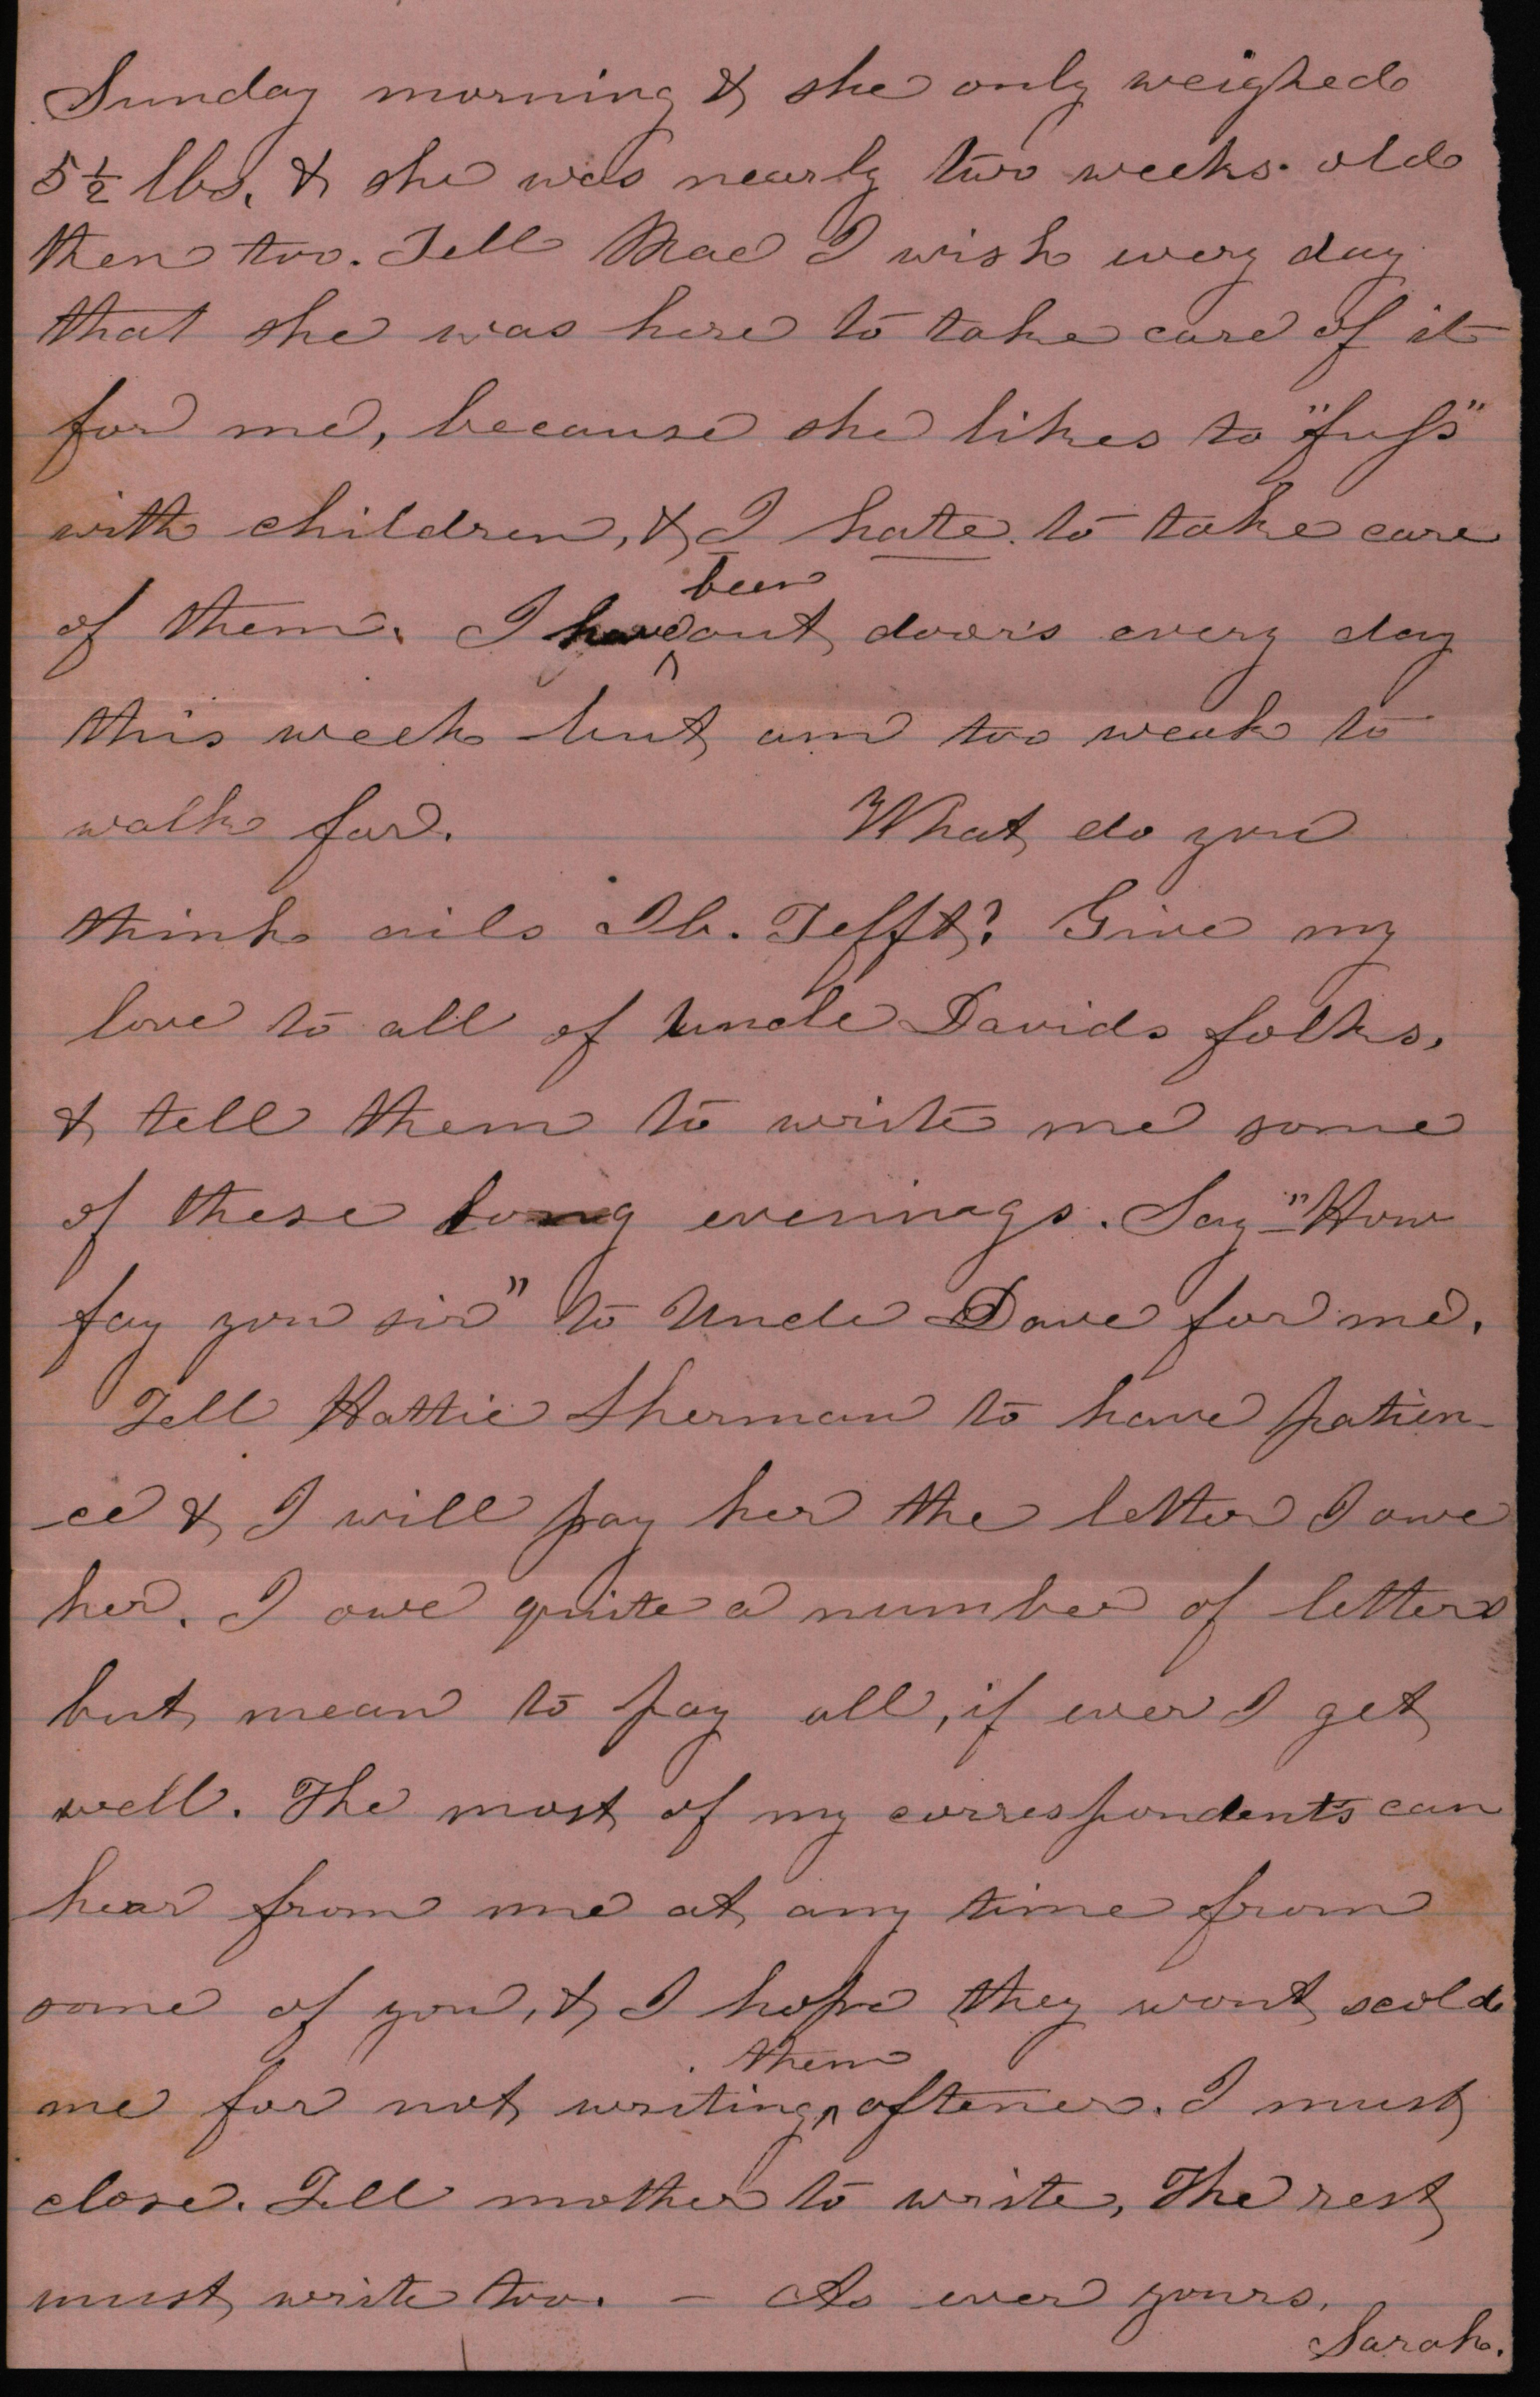 Sunday morning & she only weighed
5 1/2 lbs. & she was nearly two weeks old
then too. Tell Mae I wish every day
that she was here to take care of it
for me, because she likes to "fuss"
with children, & I hate to take care
of them. I have been out doors every day
this week but am too weak to
walk far. What do you
think ails Ib. Tefft? Give my
love to all of Uncle Davids folks,
& tell them to write me some
of these long evenings. Say "How
fay you sir" to Uncle Dave for me.
Tell Hattie Sherman to have patien-
-ce & I will pay her the letter I owe
her. I owe quite a number of letters
but mean to pay all, if ever I get
well. The most of my correspondents can
hear from me at any time from
some of you, & I hope they wont scold
me for not writing them oftener. I must
close. Tell mother to write, The rest
must write too. – As ever yours,
Sarah.